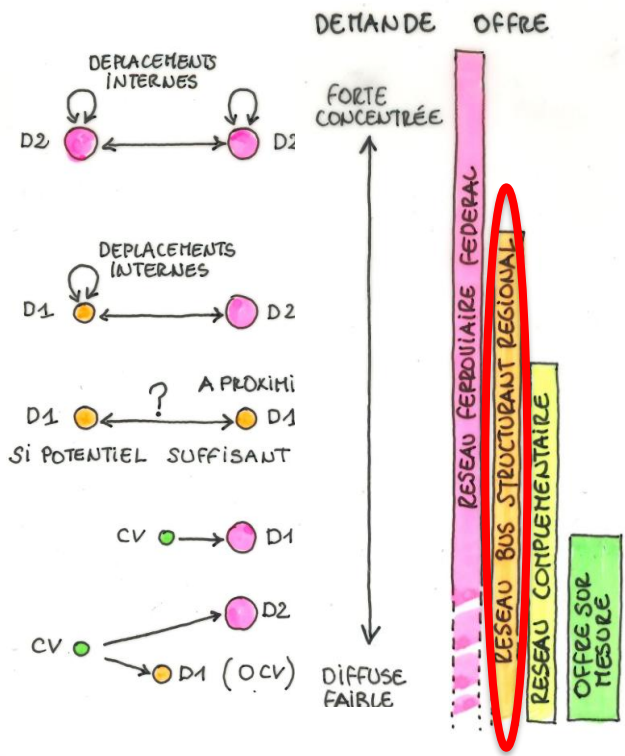 DEMANDE OFFRE
DEPLACEMENTS
INTERNES
D2 D2
FORTE
CONCENTRÉE
DEPLACEMENTS
INTERNES
D1 D2
A PROXIMI
D1 ? D1
SI POTENTIEL SUFFISANT
CV D1
D2
CV
D1 (OCV)
DIFFUSE
FAIBLE
RESEAU FERROVIAIRE FEDERAL
RESEAU BUS STRUCTURANT REGIONAL
RESEAU COMPLEMENTAIRE
OFFRE SUR
MESURE